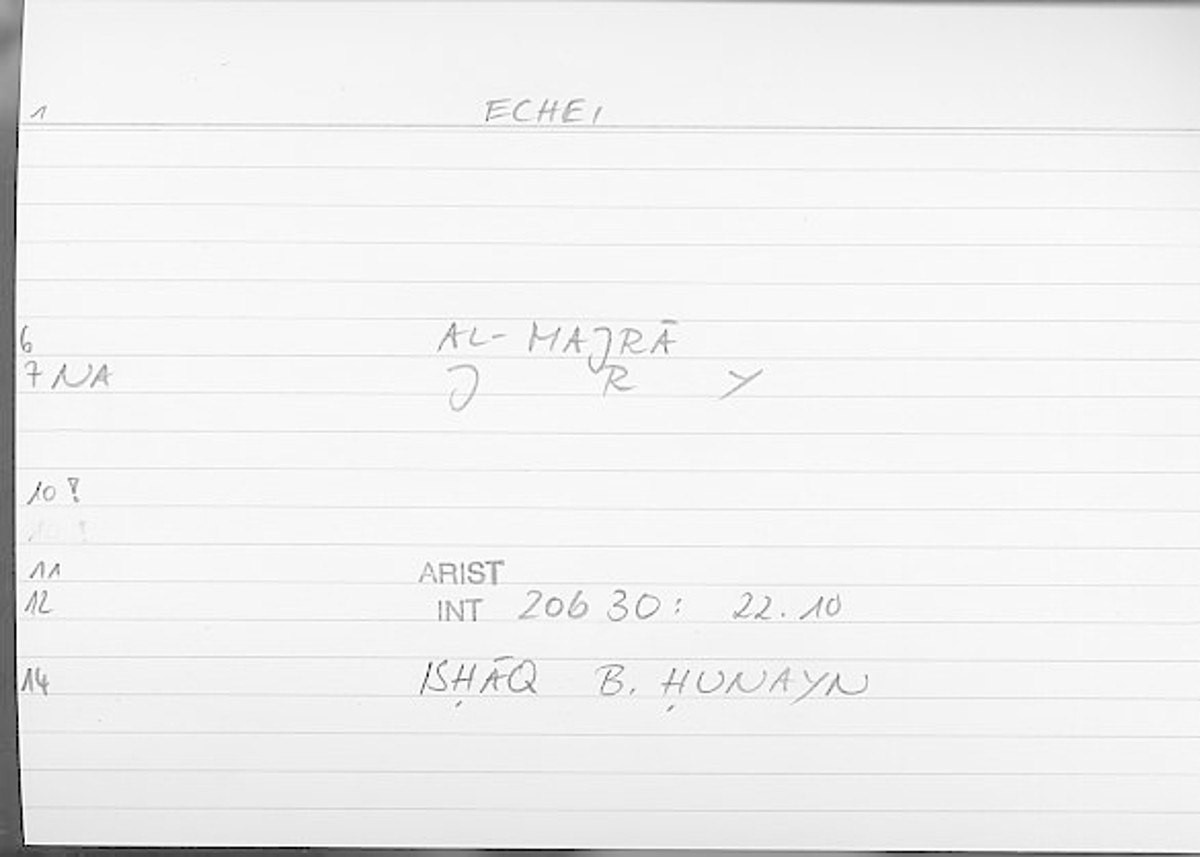 1 ECHEI
6 AL-MAJRĀ
7 NA J R Y
10 !
10 !
11 ARIST
12 INT 206 30: 22.10
14 ISḤĀQ B. ḤUNAYN